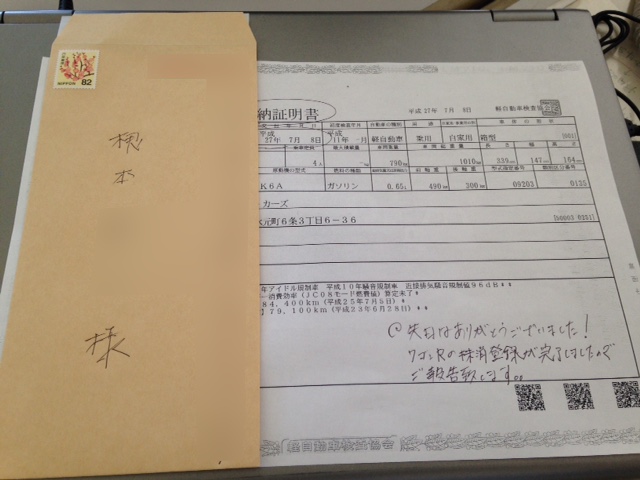 82
NIPPON
様
本
様
納証明書
平成 27年 7月 8日
軽自動車検査協会
平成
27年 7月 8日
平成
11年 -月
軽自動車
乗用
自家用
箱型
4人
-kg
790kg
1010kg
339cm
147cm
164cm
原動機の型式
燃料の種類
K6A
ガソリン
0.65L
490kg
300kg
09203
0135
カーズ
元町6条3丁目6-36
年アイドル規制車 平成10年騒音規制車 近接排気騒音規制値96dB
消費効率(JC08モード燃費値)算定未了
84,400km(平成25年7月5日)
79,100km(平成23年6月28日)
@先日はありがとうございました!
ワゴンRの抹消登録が完了しましたので
ご報告致します。
軽自動車検査協会